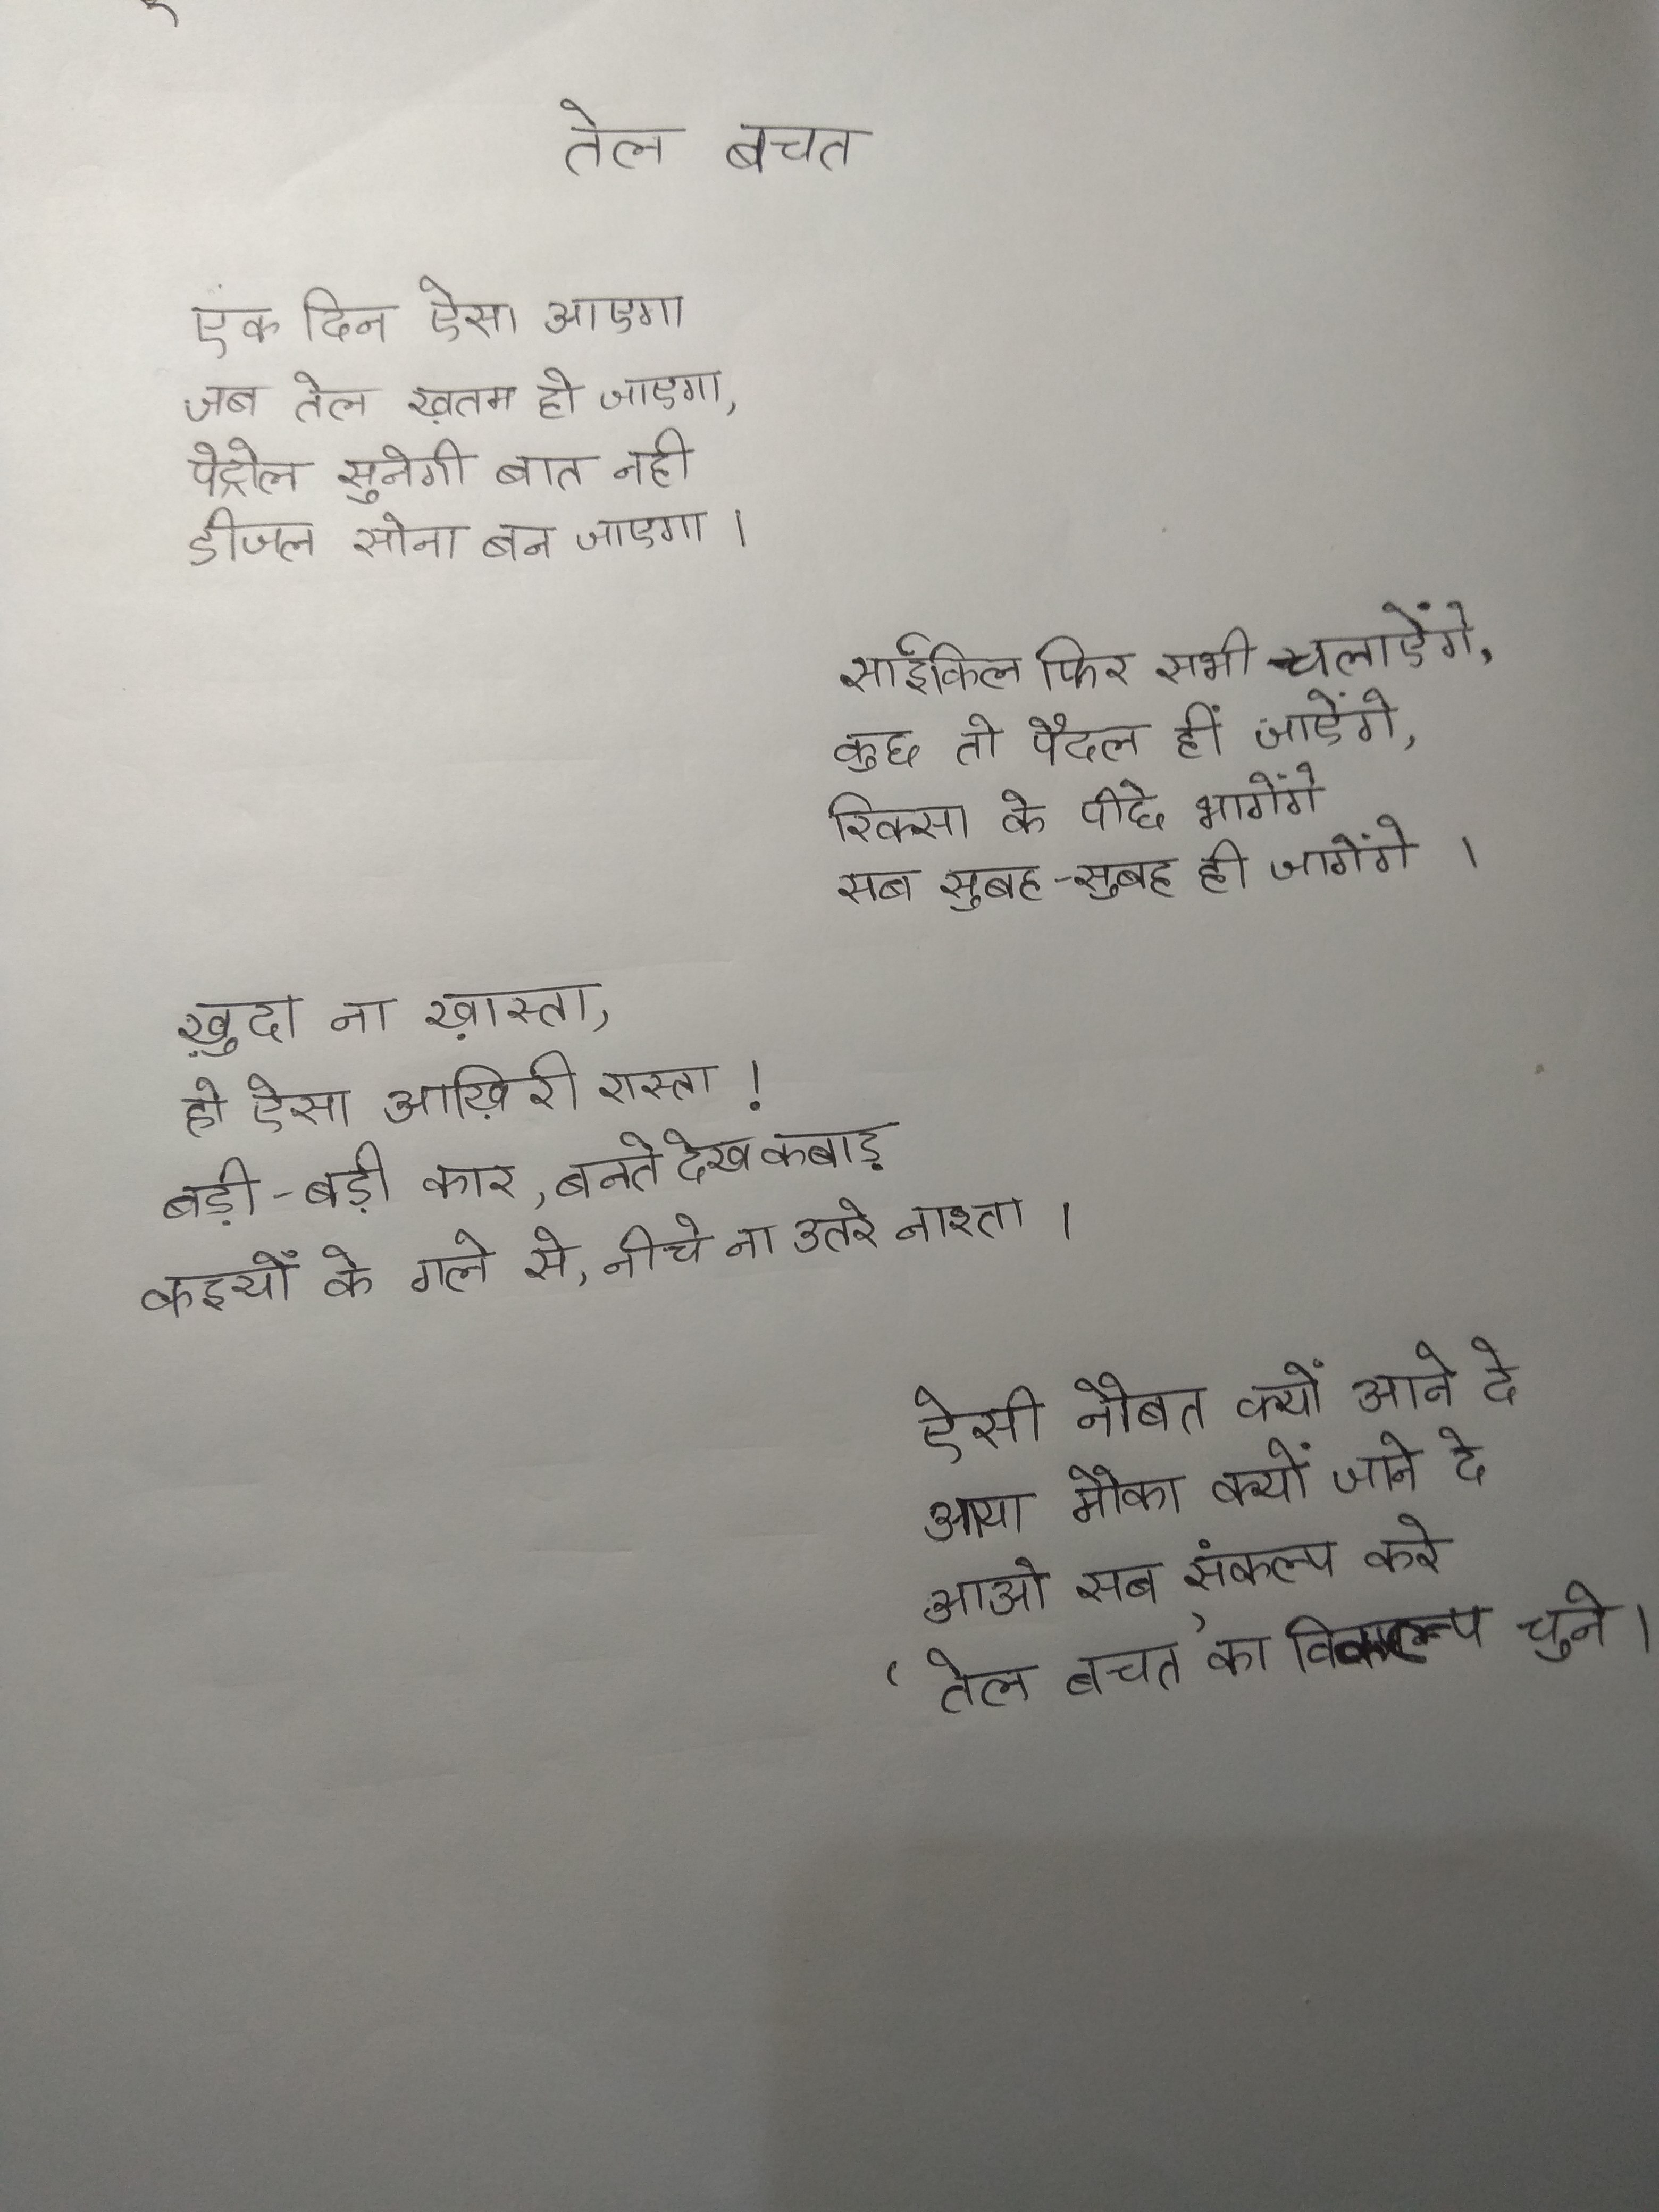 तेल बचत
एक दिन ऐसा आएगा
जब तेल ख़तम हो जाएगा,
पेट्रोल सुनेगी बात नही
डीजल सोना बन जाएगा ।
साईकिल फिर सभी चलाऐंगे,
कुछ तो पैदल हीं जाऐंगे,
रिक्सा के पीछे भागेंगे
सब सुबह-सुबह ही जागेंगे ।
ख़ुदा ना ख़ास्ता,
हो ऐसा आख़िरी रास्ता !
बड़ी-बड़ी कार, बनते देख कबाड़
कइयों के गले से, नीचे ना उतरे नाश्ता ।
ऐसी नौबत क्यों आने दे
आया मौका क्यों जाने दे
आओ सब संकल्प करे
'तेल बचत' का विकल्प चुने ।